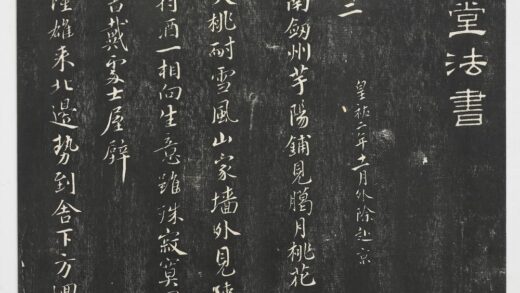 堂法書
三
皇祐二年十一月外除赴京
南劒州芋陽鋪見臘月桃花
夭桃耐雪風山家墻外見
持酒一相向生意雖殊寂寞
戴處士屋壁
隆雄来北邊勢到舍下方